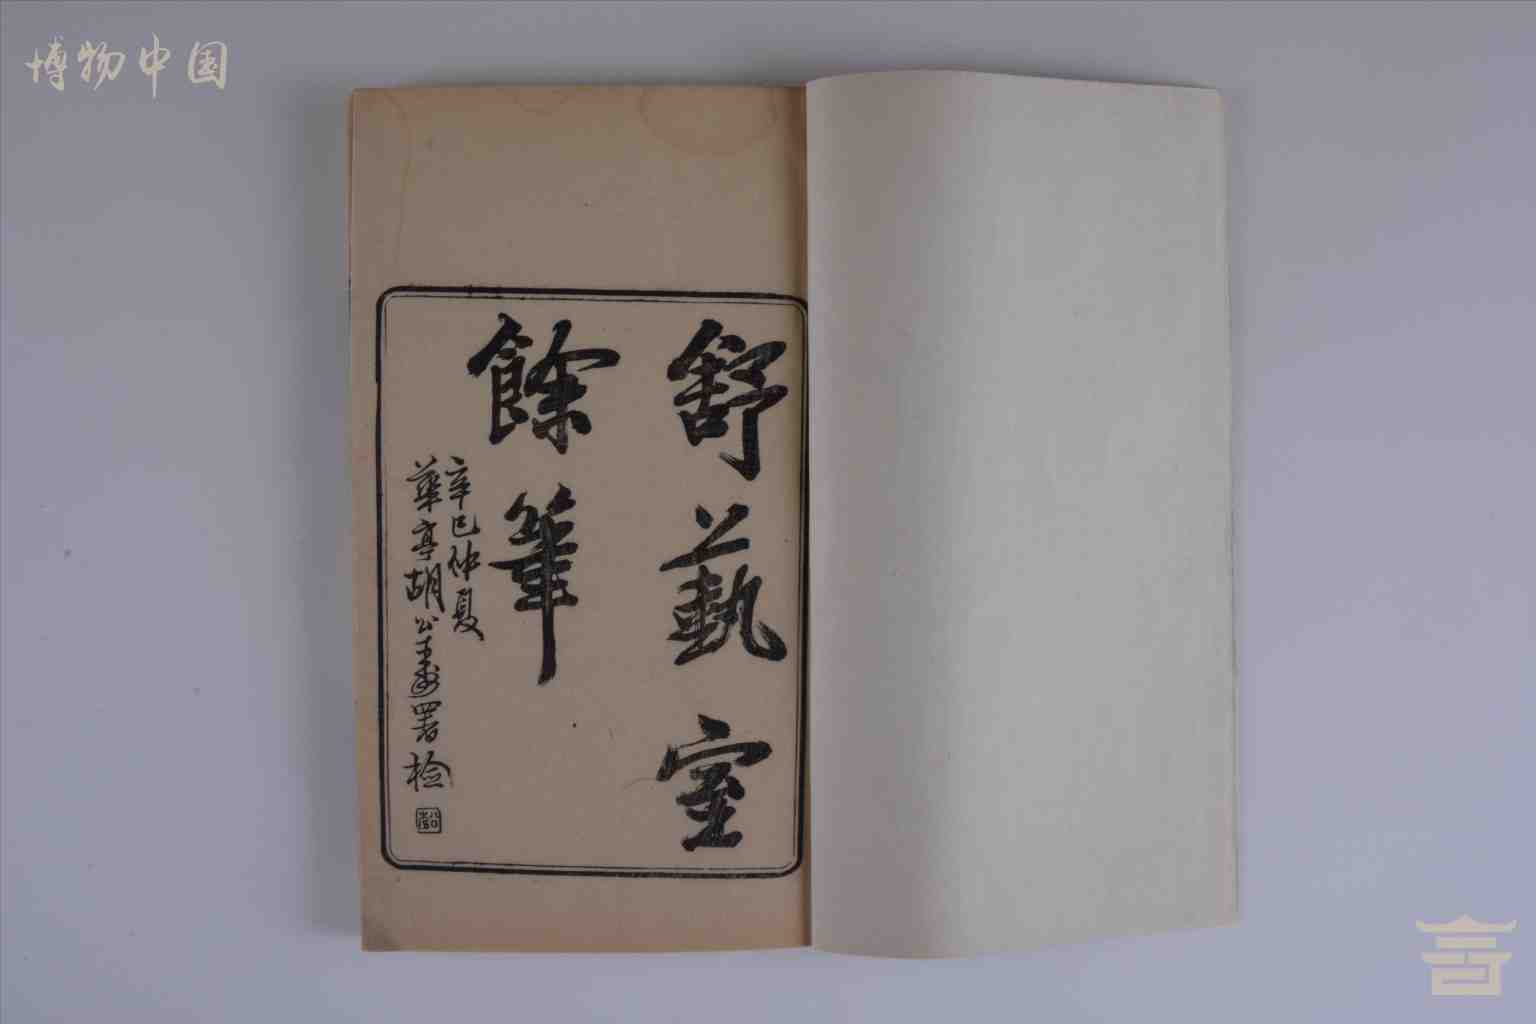 博物中国
舒藝室
餘筆
辛巳仲夏
華亭胡公壽署檢